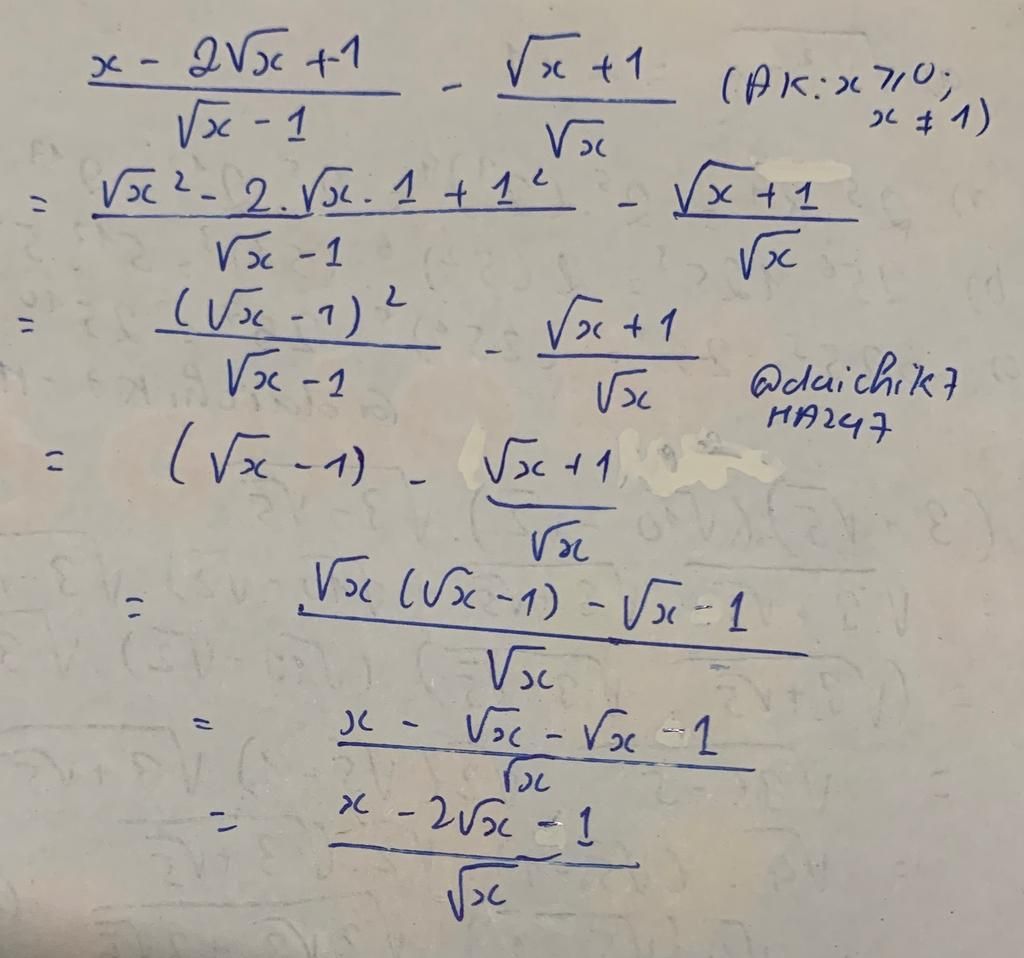 x - 2√x + 1 / √x - 1 - √x + 1 / √x (ĐK: x ≥ 0; x ≠ 1)
= √x² - 2.√x. 1 + 1² / √x - 1 - √x + 1 / √x
= (√x - 1)² / √x - 1 - √x + 1 / √x
@daichik7
HA247
= (√x - 1) - √x + 1 / √x
= √x (√x - 1) - √x - 1 / √x
= x - √x - √x - 1 / √x
= x - 2√x - 1 / √x